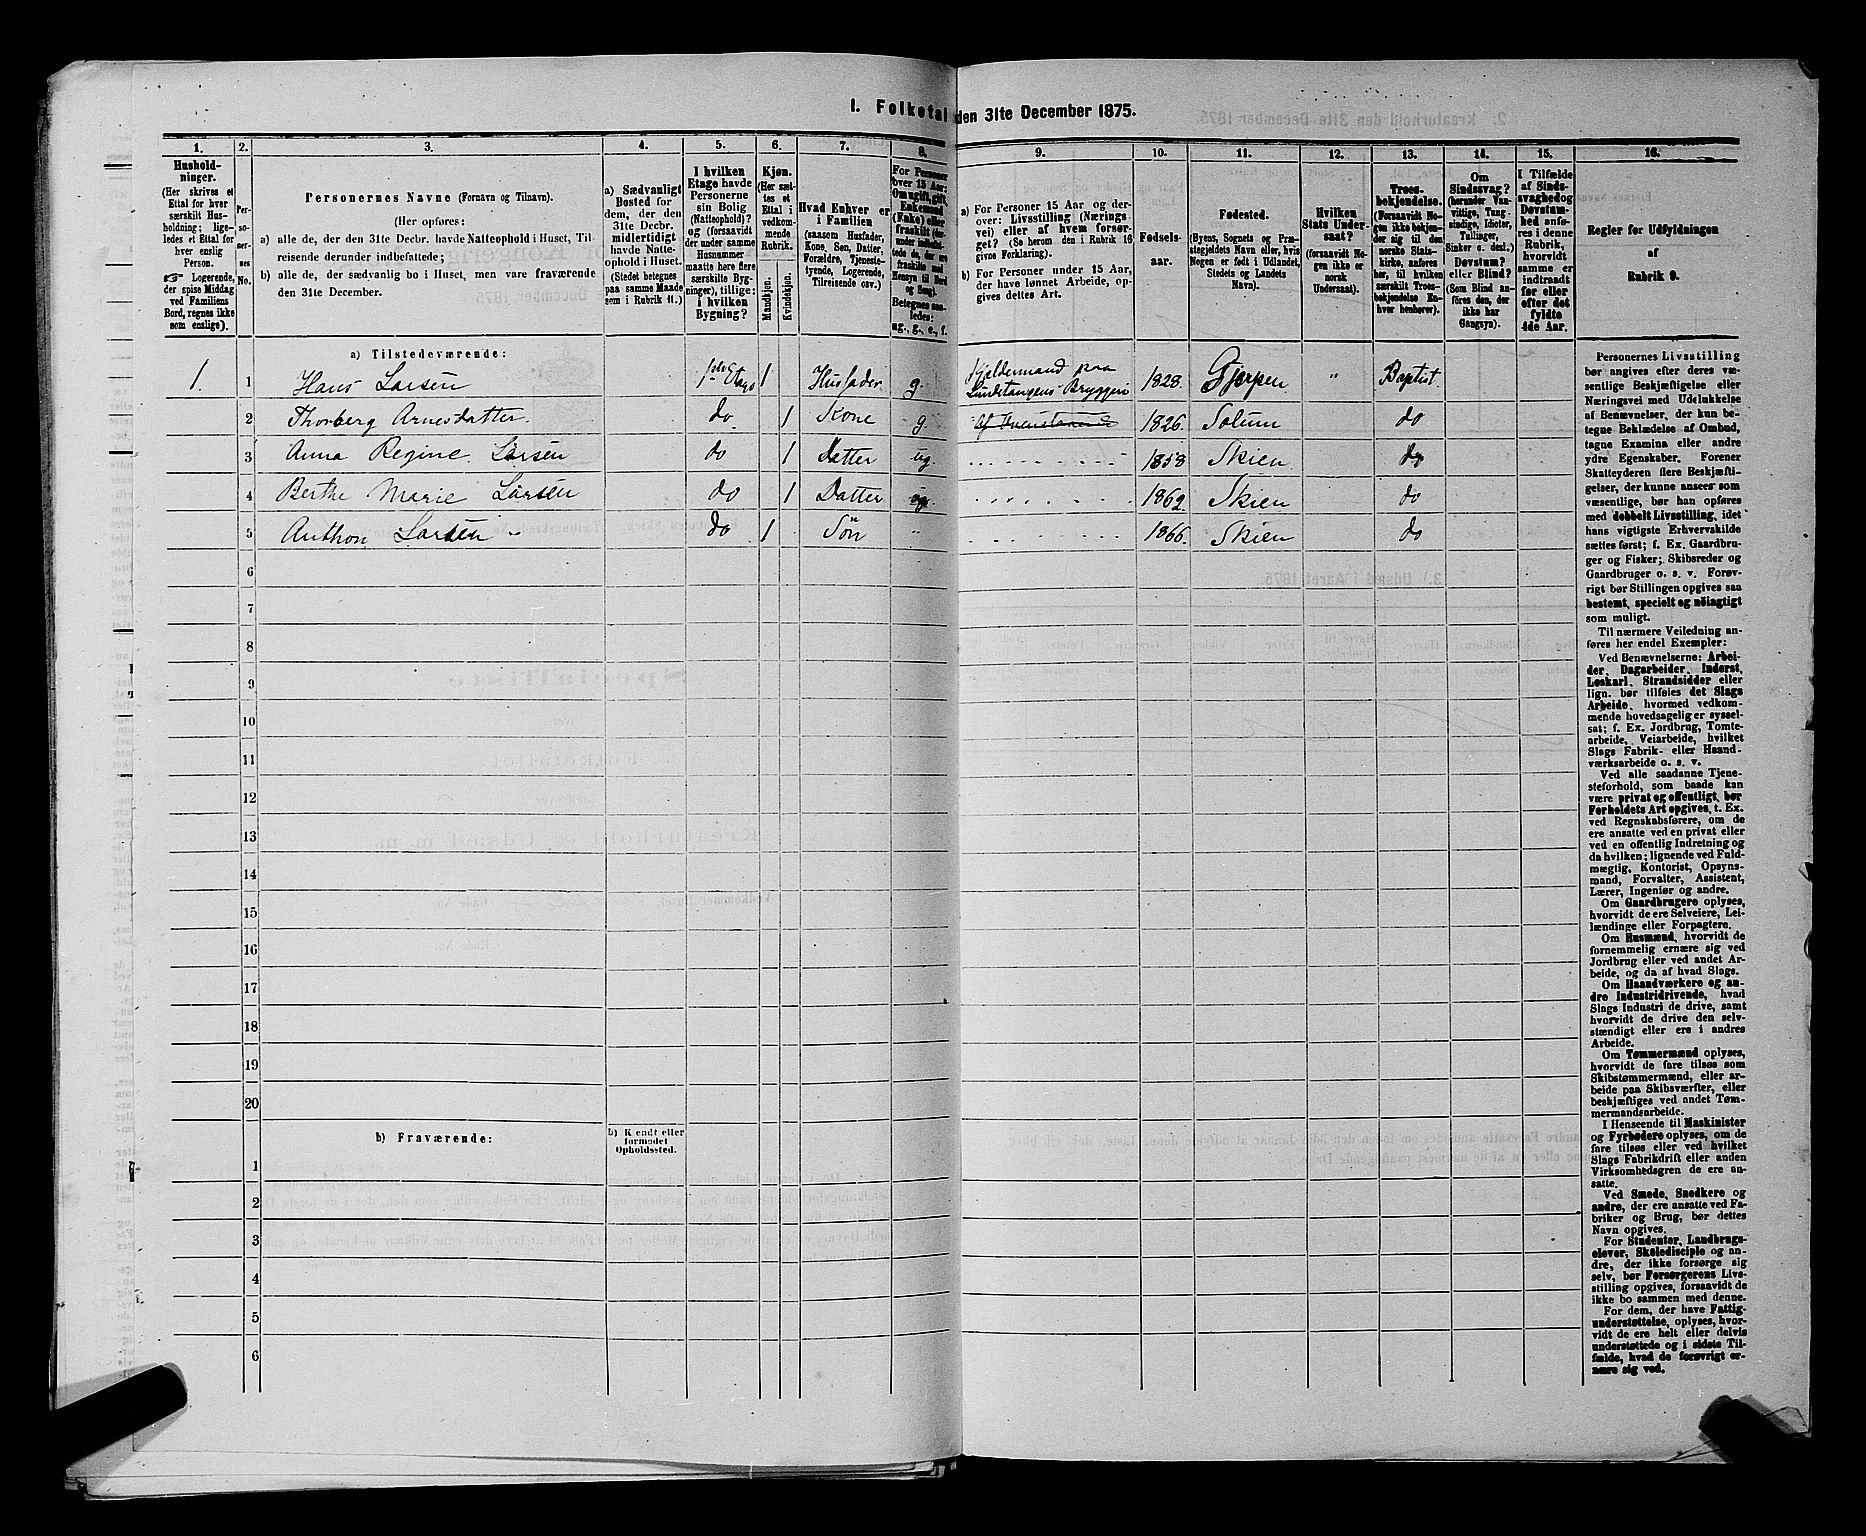 1. Folketal den 31te December 1875.
1.
Hushold-
ninger.
(Her skrives et
Ettal for hver
særskilt Hus-
holdning; lige-
ledes et Ettal for
hver enslig
Person.
☞ Logerende,
der spise Middag
ved Familiens
Bord, regnes ikke
som enslige).
2.
Per-
so-
ner-
nes
No.
3.
Personernes Navne (Fornavn og Tilnavn).
(Her opføres:
a) alle de, der den 31te Decbr. havde Natteophold i Huset, Til-
reisende derunder indbefattede;
b) alle de, der sædvanlig bo i Huset, men vare fraværende
den 31te December.
4.
a) Sædvanligt
Bosted for
dem, der den
31te Decbr.
midlertidigt
havde Natte-
ophold i Huset.
(Stedet betegnes
paa samme Maade
som i Rubrik 11.)
5.
I hvilken
Etage havde
Personerne
sin Bolig
(Natteophold)?
og (forsaavidt
der under samme
Husnummer
maatte høre flere
særskilte Byg-
ninger), tillige:
i hvilken
Bygning?
6.
Kjøn.
(Her sæt-
tes et
Ettal i
vedkom-
mende
Rubrik.
Mandkjøn.
Kvindekjøn.
7.
Hvad Enhver er
i Familien
(saasom Husfader,
Kone, Søn, Datter,
Forældre, Tjeneste-
tyende, Logerende,
Tilreisende osv.)
8.
For Personer
over 15 Aar:
Om ugift, gift,
Enkemand
(Enke) eller
fraskilt (der-
under indbefat-
tede de, der ere
fraskilte med
Hensyn til Bord
og Seng).
Betegnes saa-
ledes:
ug., g., e., f.
9.
a) For Personer 15 Aar og der-
over: Livsstilling (Nærings-
vei) eller af hvem forsør-
get? (Se herom den i Rubrik 16
givne Forklaring).
b) For Personer under 15 Aar,
der have lønnet Arbeide, op-
gives dettes Art.
10.
Fødsels-
aar.
11.
Fødested.
(Byens, Sognets og Præ-
stegjeldets Navn eller, hvis
Nogen er født i Udlandet,
Stedets og Landets
Navn).
12.
Hvilken
Stats Under-
saat?
(forsaavidt No-
gen ikke er
norsk
Undersaat).
13.
Troes-
bekjendelse.
(Forsaavidt No-
gen ikke bekjen-
der sig til den
norske Stats-
kirke, anføres
her, til hvilken
særskilt Troes-
bekjendelse En-
hver henhører).
14.
Om
Sindssvag?
(herunder Van-
vittige, Tung-
sindige, Idioter,
Tullinger,
Sinker o. desl.)
Døvstum?
eller Blind?
(Som Blind an-
føres den, der
ikke har
Gangsyn).
15.
I Tilfælde
af Sinds-
svaghed og
Døvstum-
hed anfø-
res i denne
Rubrik,
hvorvidt
samme er
indtraadt
før eller
efter det
fyldte
4de Aar.
16.
Regler for Udfyldningen
af
Rubrik 9.
a) Tilstedeværende:
1. 1 Hans Larsen 1ste Etage 1 Husfader g. Kjeldermand paa Lundetangens Bryggeri 1828. Gjerpen " Baptist
2 Thorberg Arnesdatter. do 1 Kone g. 1826. Solum do
3 Anna Regine Larsen do 1 Datter ug. 1858 Skien do
4 Berthe Marie Larsen do 1 Datter ug. 1862. Skien do
5 Anthon Larsen do 1 Søn " 1866. Skien do
6
7
8
9
10
11
12
13
14
15
16
17
18
19
20
b) Fraværende:
b) Kjendt eller
formodet
Opholdssted.
1
2
3
4
5
6
Personernes Livsstilling
bør angives efter deres væ-
sentlige Beskjæftigelse eller
Næringsvei med Udelukkelse
af Benævnelser, der kun be-
tegne Beklædelse af Ombud,
tagne Examina eller andre
ydre Egenskaber. Forener
Skatteyderen flere Beskjæfti-
gelser, der kunne ansees som
væsentlige, bør han opføres
med dobbelt Livsstilling, idet
hans vigtigste Erhvervskilde
sættes først; f. Ex. Gaardbru-
ger og Fisker; Skibsreder og
Gaardbruger o. s. v. Forøv-
rigt bør Stillingen opgives saa
bestemt, specielt og nöiagtigt
som muligt.
Til nærmere Veiledning an-
føres her endel Exempler:
Ved Benævnelserne: Arbei-
der, Dagarbeider, Inderst,
Løskarl, Strandsidder eller
lign. bør tilføies det Slags
Arbeide, hvormed vedkom-
mende hovedsagelig er syssel-
sat; f. Ex. Jordbrug, Tomte-
arbeide, Veiarbeide, hvilket
Slags Fabrik- eller Haand-
værksarbeide o. s. v.
Ved alle saadanne Tjene-
steforhold, som baade kan
være privat og offentligt, bør
Forholdets Art opgives, t. Ex.
ved Regnskabsførere, om de
ere ansatte ved en privat eller
ved en offentlig Indretning og
da hvilken; lignende ved Fuld-
mægtig, Kontorist, Opsyns-
mand, Forvalter, Assistent,
Lærer, Ingeniør og andre.
Om Gaardbrugere oplyses,
hvorvidt de ere Selveiere, Lei-
lændinge eller Forpagtere.
Om Husmænd, hvorvidt de
fornemmelig ernære sig ved
Jordbrug eller ved andet Ar-
beide, og da af hvad Slags.
Om Haandværkere og an-
dre Industridrivende, hvad
Slags Industri de drive, samt
hvorvidt de drive den selv-
stændigt eller ere i andres
Arbeide.
Om Tømmermænd oplyses,
hvorvidt de fare tilsøs som
Skibstømmermænd, eller ar-
beide paa Skibsværfter, eller
beskjæftiges ved andet Tøm-
mermandsarbeide.
I Henseende til Maskinister
og Fyrbødere oplyses, om de
fare tilsøs eller ved hvilket
Slags Fabrikdrift eller anden
Virksomhedsgren de ere an-
satte.
Ved Smede, Snedkere og
andre, der ere ansatte ved Fa-
briker og Brug, bør dettes
Navn opgives.
For Studenter, Landbrugs-
elever, Skoledisciple og an-
dre, der ikke forsørge sig
selv, bør Forsørgerens Livs-
stilling opgives, forsaavidt de
ikke bo sammen med denne.
For dem, der have Fattig-
understøttelse, oplyses, hvor-
vidt de ere helt eller delvis
understøttede og i sidste Til-
fælde, hvad de forøvrigt er-
nære sig ved.